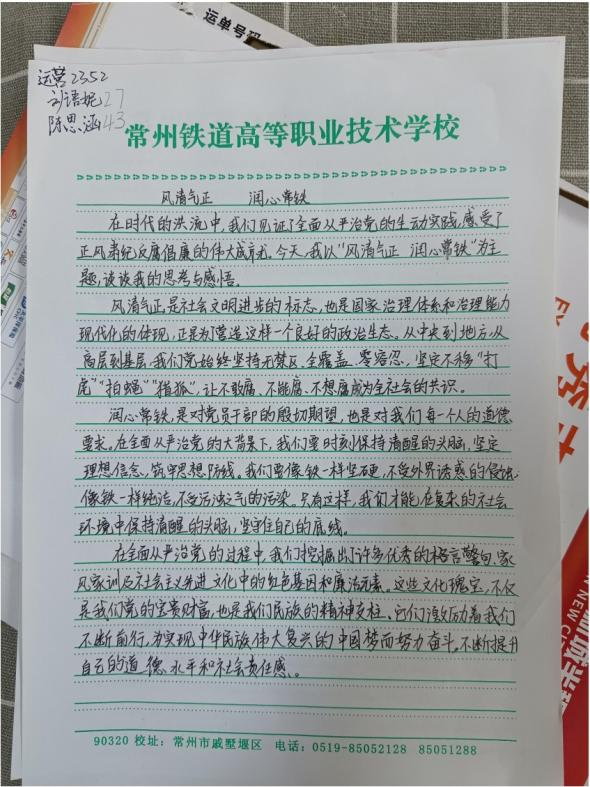 运单号码
运营2352
刘语妮27
陈思涵43
常州铁道高等职业技术学校
风清气正 润心常铁
在时代的洪流中,我们见证了全面从严治党的生动实践,感受了
正风肃纪反腐倡廉的伟大成就。今天,我以“风清气正 润心常铁”为主
题,谈谈我的思考与感悟。
风清气正,是社会文明进步的标志,也是国家治理体系和治理能力
现代化的体现,正是为营造这样一个良好的政治生态。从中央到地方,从
高层到基层,我们党始终坚持无禁区、全覆盖、零容忍,坚定不移“打
虎”“拍蝇”“猎狐”,让不敢腐、不能腐、不想腐成为全社会的共识。
润心常铁,是对党员干部的殷切期望,也是对我们每一个人的道德
要求。在全面从严治党的大背景下,我们要时刻保持清醒的头脑,坚定
理想信念,筑牢思想防线。我们要像铁一样坚硬,不受外界诱惑的侵蚀,
像铁一样纯洁,不受污浊之气的污染。只有这样,我们才能在复杂的社会
环境中保持清醒的头脑,坚守住自己的底线。
在全面从严治党的过程中,我们挖掘出了许多优秀的格言警句、家
风家训及社会主义先进文化中的红色基因和廉洁元素。这些文化瑰宝,不仅
是我们党的宝贵财富,也是我们民族的精神支柱、它们激励着我们
不断前行,为实现中华民族伟大复兴的中国梦而努力奋斗。不断提升
自己的道德水平和社会责任感。
90320 校址:常州市戚墅堰区 电话:0519-85052128 85051288